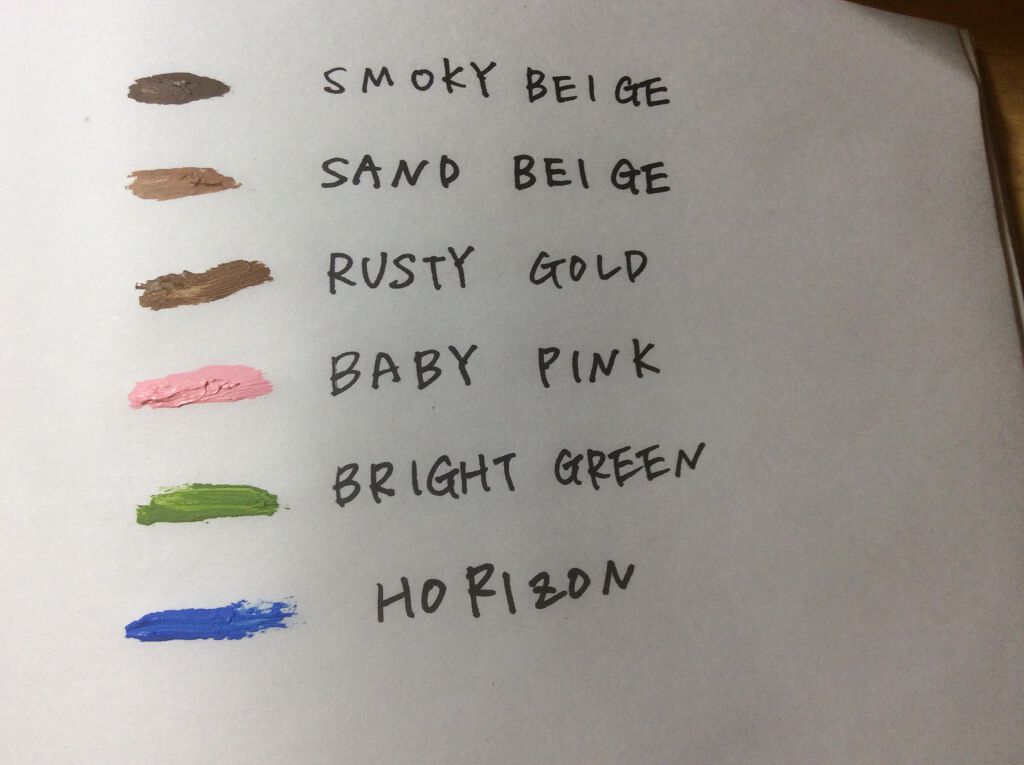 SMOKY BEIGE
SAND BEIGE
RUSTY GOLD
BABY PINK
BRIGHT GREEN
HORIZON